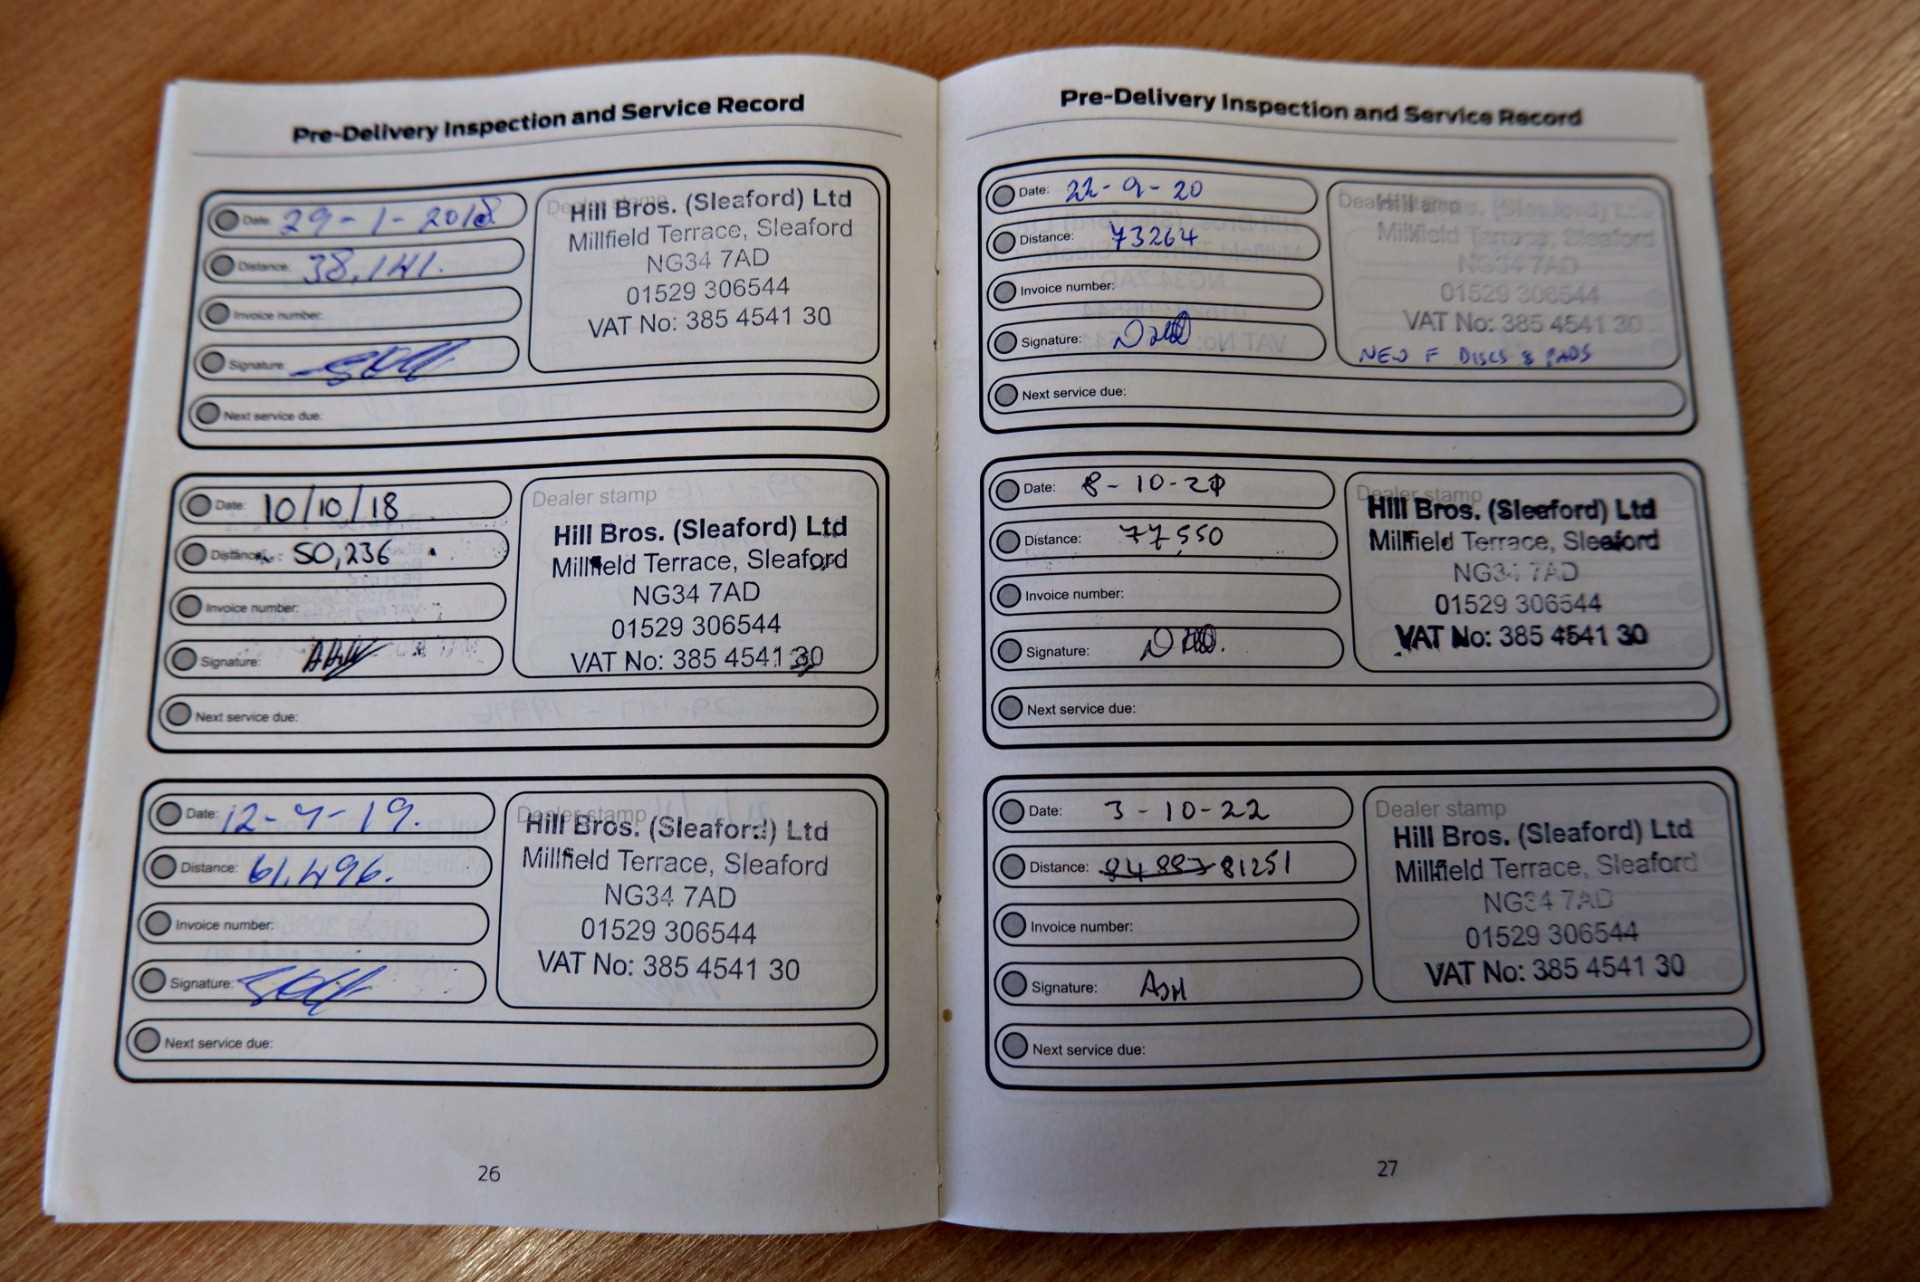 Pre-Delivery Inspection and Service Record
Date: 29-1-2018
Distance: 38,141.
Invoice number:
Signature:
Dealer stamp
Hill Bros. (Sleaford) Ltd
Millfield Terrace, Sleaford
NG34 7AD
01529 306544
VAT No: 385 4541 30
Next service due:
Date: 10/10/18
Distance: 50,236
Invoice number:
Signature:
Dealer stamp
Hill Bros. (Sleaford) Ltd
Millfield Terrace, Sleaford
NG34 7AD
01529 306544
VAT No: 385 4541 30
Next service due:
Date: 12-7-19.
Distance: 61,496.
Invoice number:
Signature:
Dealer stamp
Hill Bros. (Sleaford) Ltd
Millfield Terrace, Sleaford
NG34 7AD
01529 306544
VAT No: 385 4541 30
Next service due:
26
Pre-Delivery Inspection and Service Record
Date: 22-9-20
Distance: 73264
Invoice number:
Signature:
Dealer stamp
Hill Bros. (Sleaford) Ltd
Millfield Terrace, Sleaford
NG34 7AD
01529 306544
VAT No: 385 4541 30
NEW F DISCS & PADS
Next service due:
Date: 8-10-21
Distance: 77,550
Invoice number:
Signature:
Dealer stamp
Hill Bros. (Sleaford) Ltd
Millfield Terrace, Sleaford
NG34 7AD
01529 306544
VAT No: 385 4541 30
Next service due:
Date: 3-10-22
Distance: 81251
Invoice number:
Signature: ASH
Dealer stamp
Hill Bros. (Sleaford) Ltd
Millfield Terrace, Sleaford
NG34 7AD
01529 306544
VAT No: 385 4541 30
Next service due:
27